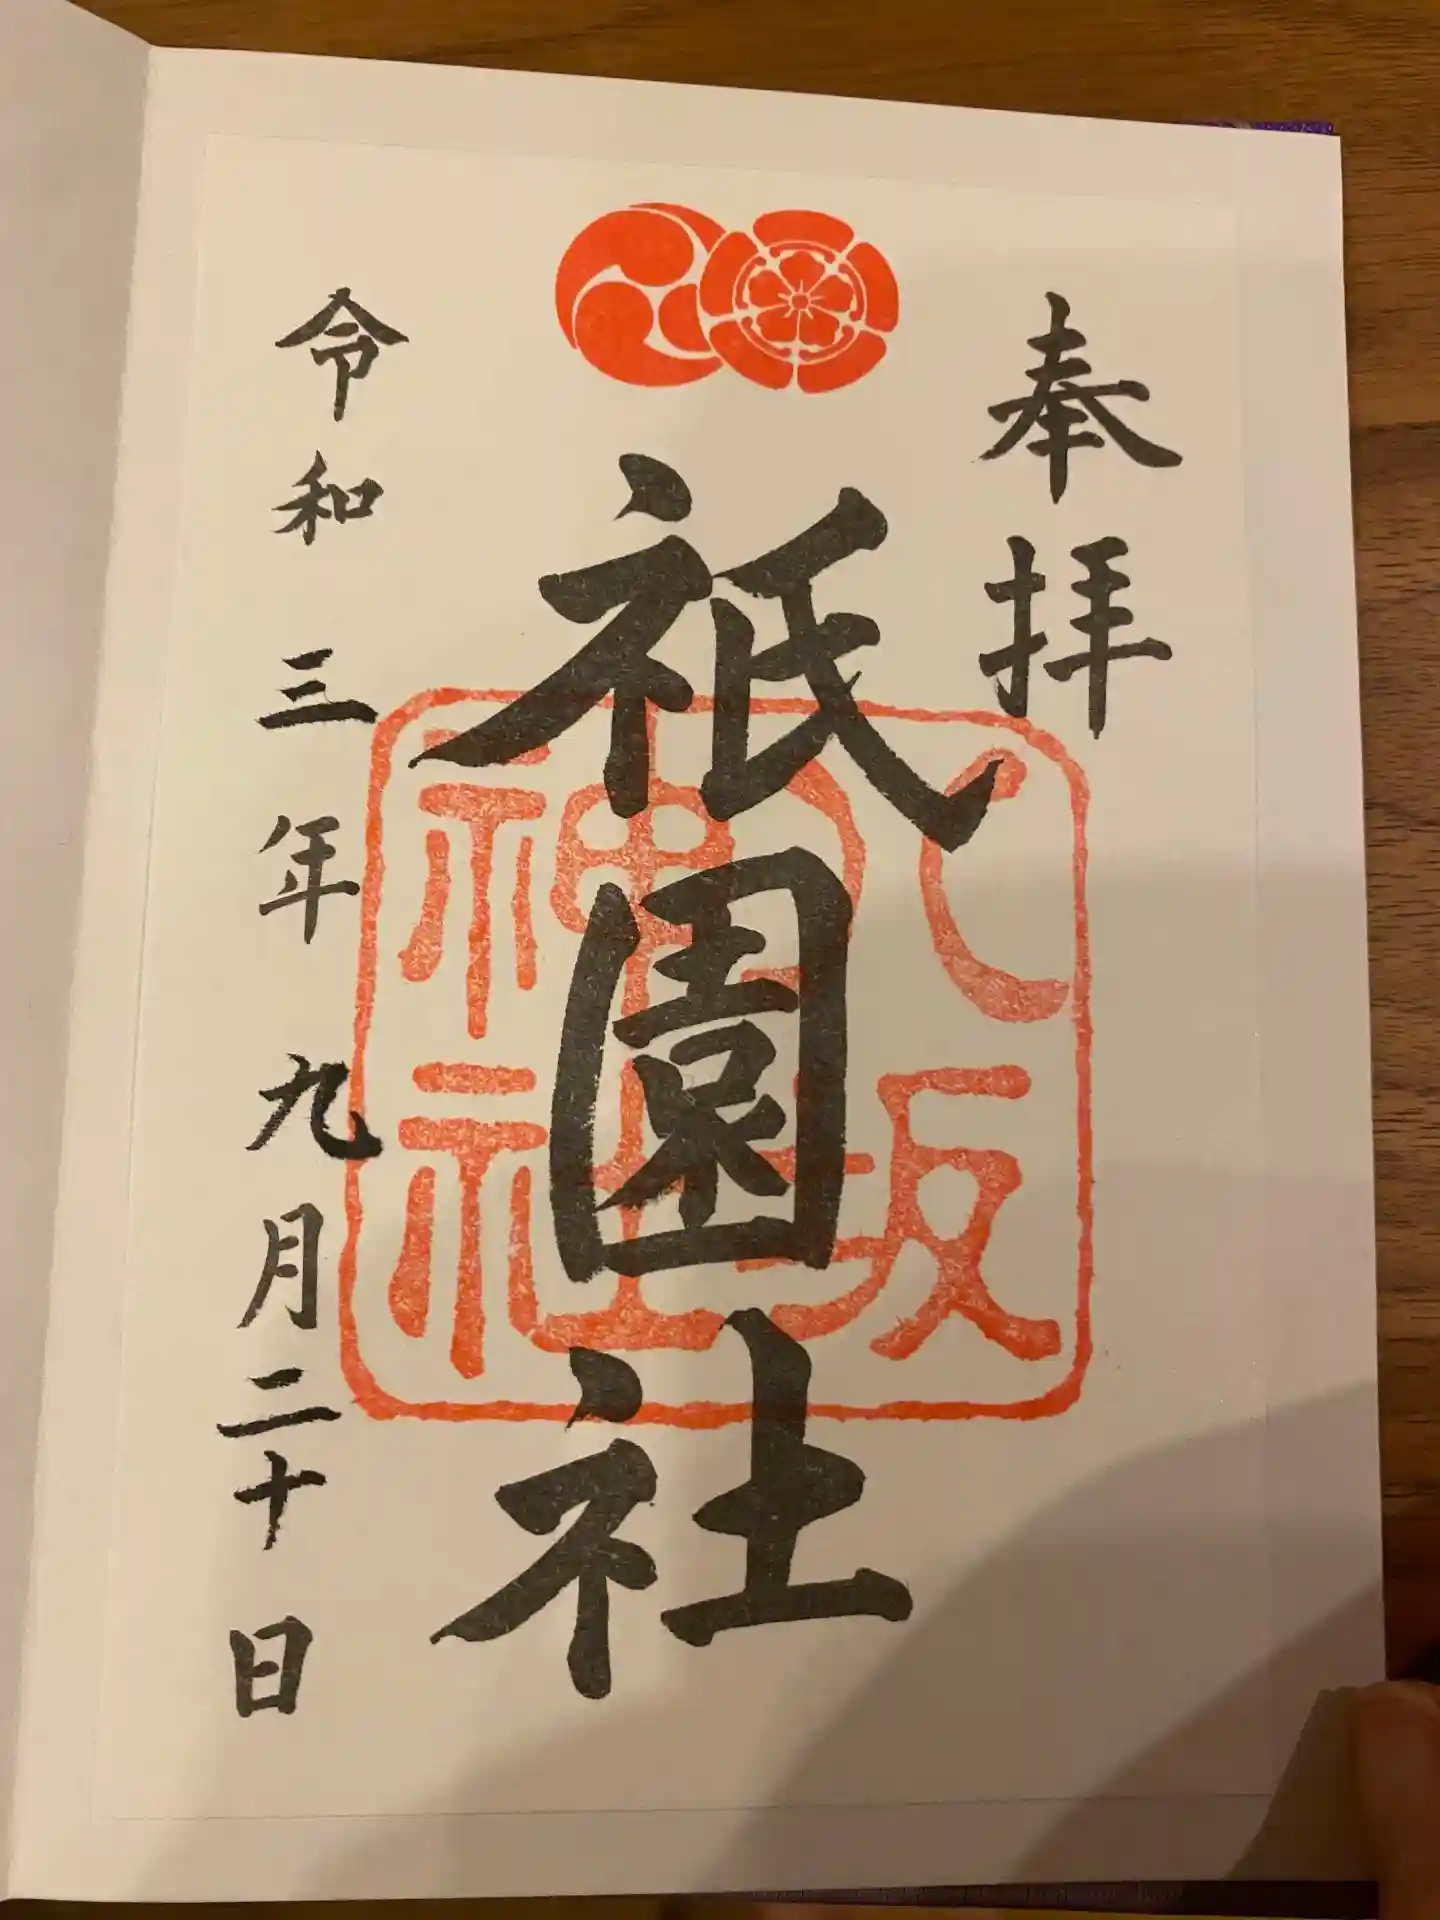 奉拝
祇園社
八坂神社
令和三年九月二十日